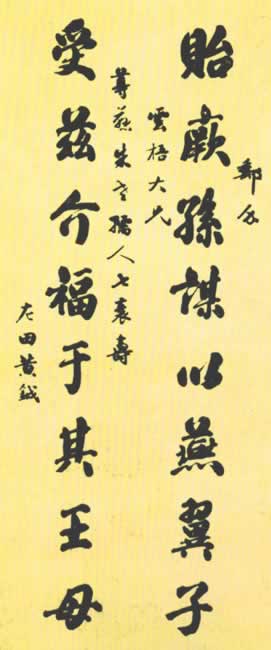 鄭
貽厥孫謀以燕翼子
雲梧大兄
尊慈朱老孺人七袠壽
受茲介福于其王母
左田黃鉞